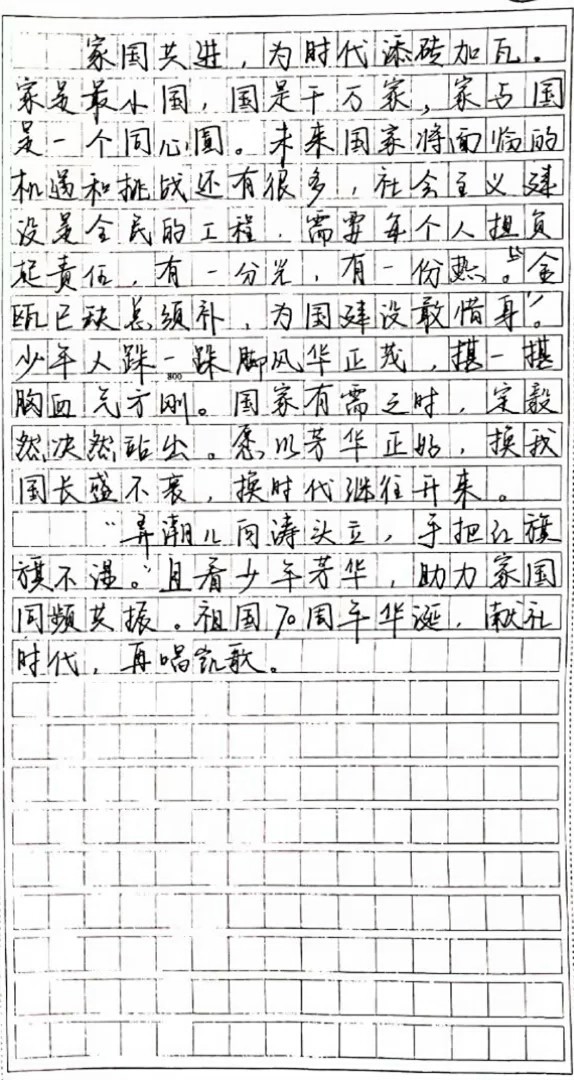 家国共进，为时代添砖加瓦。
家是最小国，国是千万家，家与国
是一个同心圆。未来国家将面临的
机遇和挑战还有很多，社会主义建
设是全民的工程，需要每个人担负
起责任，有一分光，有一份热。“金
瓯已缺总须补，为国建设敢惜身”。
少年人跺一跺脚风华正茂，揕一揕
800
胸血气方刚。国家有需之时，定毅
然决然站出。愿以芳华正好，换我
国长盛不衰，换时代继往开来。
“弄潮儿向涛头立，手把红旗
旗不湿。”且看少年芳华，助力家国
同频共振。祖国70周年华诞，献社
时代，再唱凯歌。